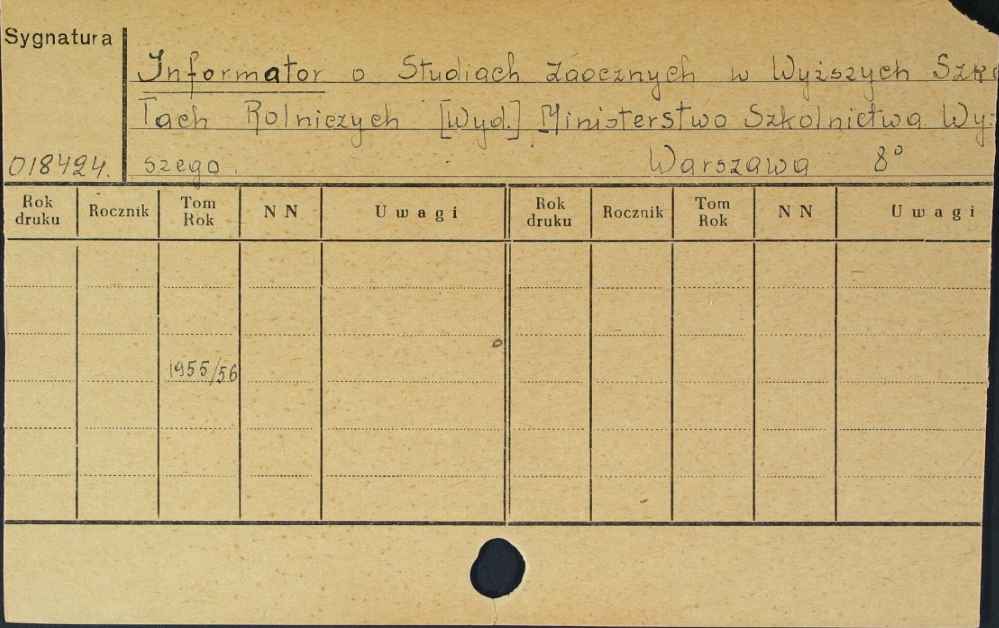 Sygnatura
Informator o Studiach Zaocznych w Wyższych Szko
łach Rolniczych [Wyd.] Ministerstwo Szkolnictwa Wyż
018424. szego. Warszawa 8°
Rok druku Rocznik Tom Rok NN Uwagi Rok druku Rocznik Tom Rok NN Uwagi
1955/56